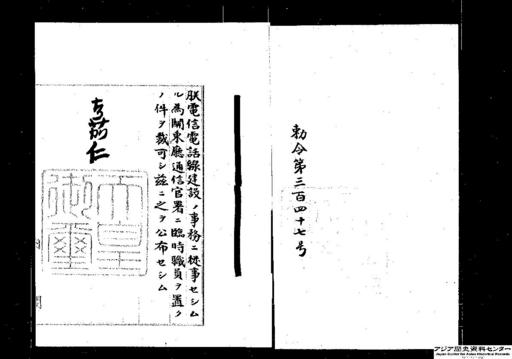 勅令第三百四十七号
朕電信電話線建設ノ事務ニ従事セシム
ル為関東庁通信官署ニ臨時職員ヲ置ク
ノ件ヲ裁可シ茲ニ之ヲ公布セシム
嘉仁
天皇
御璽
アジア歴史資料センター
Japan Center for Asian Historical Records